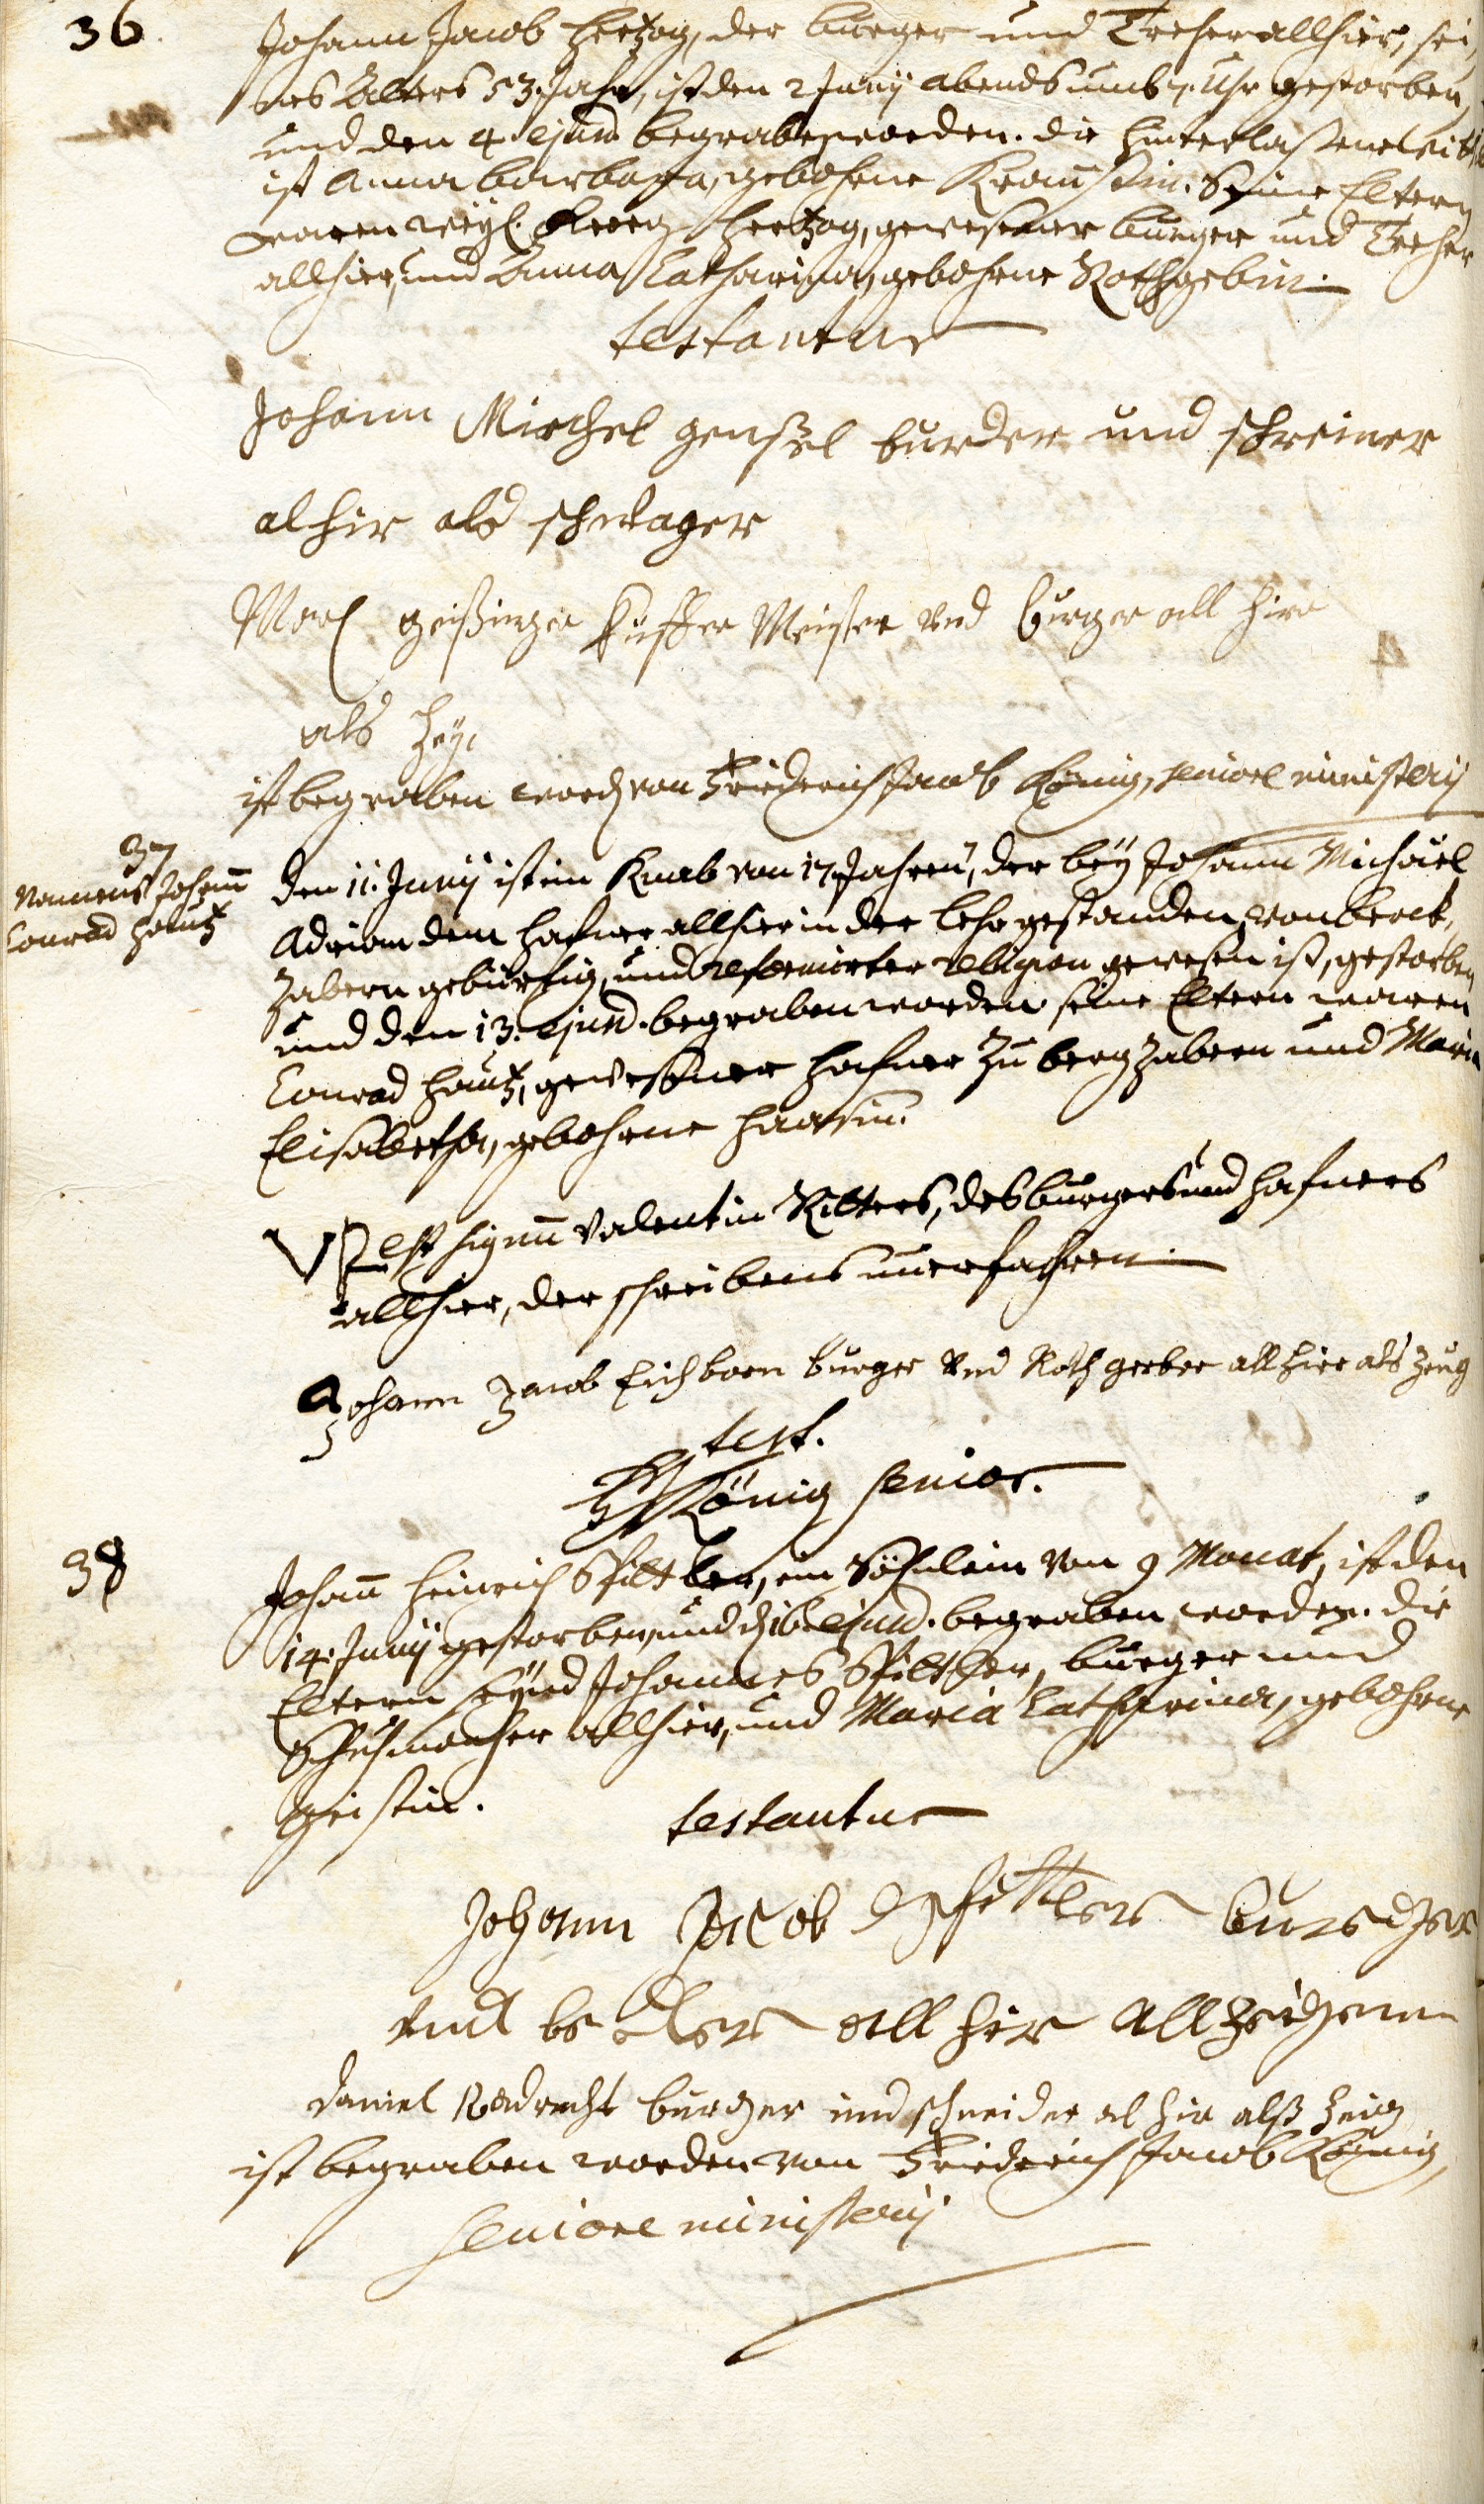 36.
Johann Jacob Hertzog, der burger und Dreher allhier, sei,
nes Alters 53. Jahr, ist den 2 Junij abends umb 7. Uhr gestorben,
und den 4. ejusd. begraben worden. die hinterlaßene wittib
ist Anna barbara, gebohrne Seine Eltern
waren weyl. Georg Hertzog, gewesener burger und Dreher
allhier, und Anna Catharina, gebohrne Rothgebin.
testantur
Johann Michel genßel burder und schreiner
alhir als schwager
geißinger Küffer Meister und burger all hire
als Zeyg
ist begraben word. von Friderich Jacob König, seniore ministerij
37
Nomens Johann
Conrad Hautz
den 11. Junij ist ein Knab von 17. Jahren, der bey Johann Michael
Adriam dem hafner allhier in der Lehr gestanden, von berck,
zabern gebürtig, und reformirter religion gewesen ist, gestorben
und den 13. ejusd. begraben worden. seine Eltern waren
Conrad Hautz, gewesener hafner zu bergzabern und Maria
Elisabetha, gebohrne Haasin.
est signum Valentin Ritters, des burgers und hafners
allhier, der schreibens unerfahren.
Johann Jacob Eichborn burger und Rothgerber allhier als Zeug
test.
König senior.
38
Johann Heinrich Spittler, ein Söhnlein von 9 Monat, ist den
14. Junij gestorben, und d. 16. ejusd. begraben worden. die
Eltern seynd Johannes Spittler, burger und
Schuhmacher allhier, und Maria Catharina, gebohrne
Geistin.
testantur
Johann Jacob Spittler burdher
und becker all hir all zeidgen
Daniel burdher und schneider al hir alß Zeig
ist begraben worden von Friderich Jacob König,
seniore ministerij